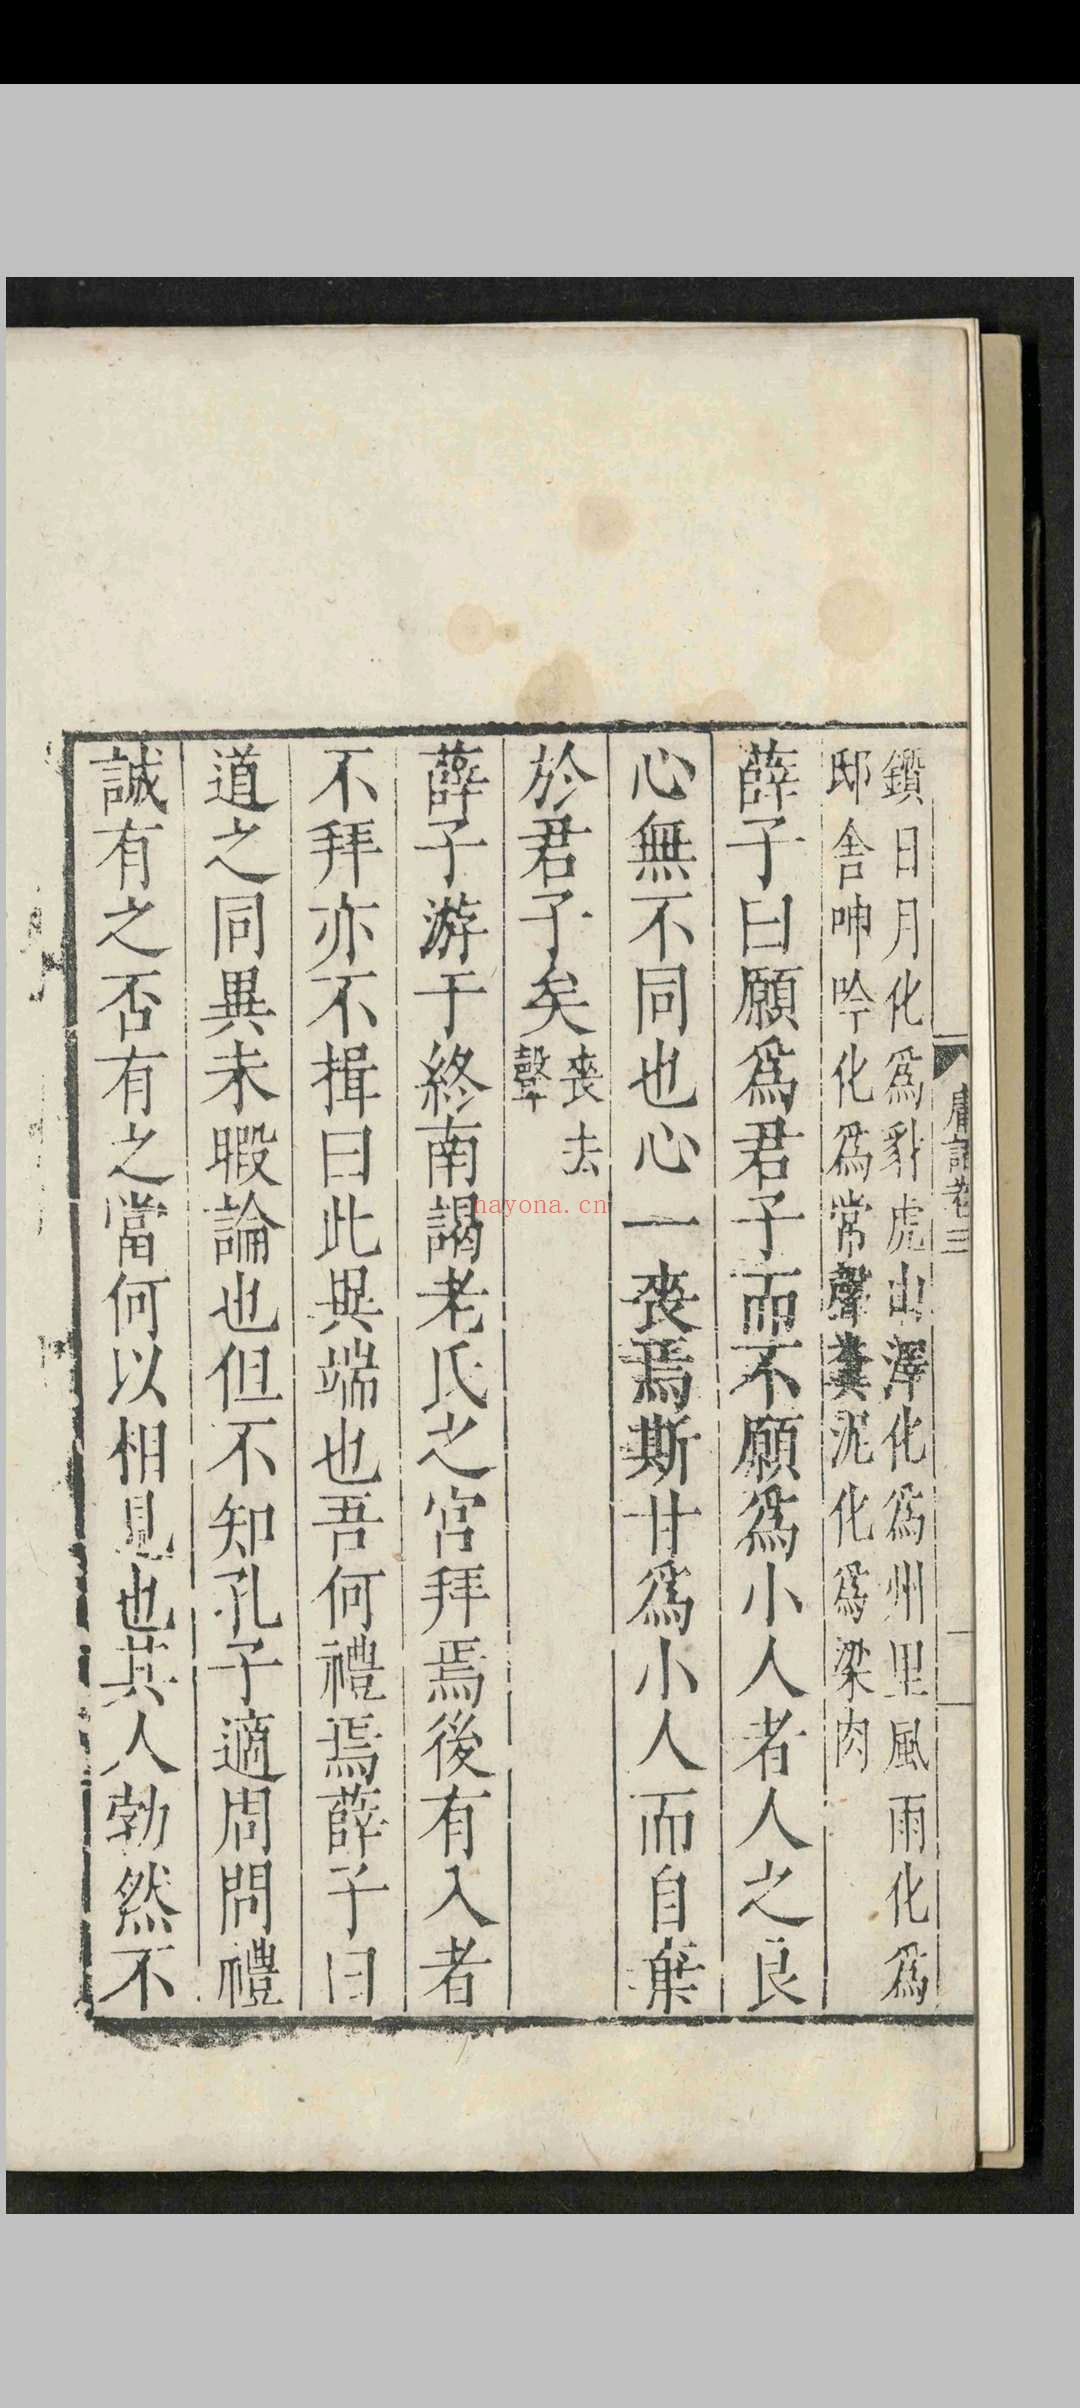 庸語卷三
鑽日月化爲豺虎山澤化爲州里風雨化爲
邸舍呻吟化爲常聲糞泥化爲梁肉
薛子曰願爲君子而不願爲小人者人之良
心無不同也心一喪焉斯甘爲小人而自棄
於君子矣
喪去
聲
薛子游于終南謁老氏之宮拜焉後有入者
不拜亦不揖曰此異端也吾何禮焉薛子曰
道之同異未暇論也但不知孔子適周問禮
誠有之否有之當何以相見也其人勃然不
nayona.cn